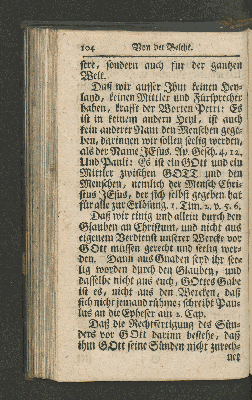 104 Von der Beicht.
sere, sondern auch für der gantzen
Welt.
Daß wir ausser Ihm keinen Hey-
land, keinen Mittler und Fürsprecher
haben, krafft der Worten Petri: Es
ist in keinem andern Heyl, ist auch
kein anderer Nam den Menschen gege-
ben, darinnen wir sollen seelig werden,
als der Name JEsus. Ap. Gesch. 4. 12.
Und Pauli: Es ist ein GOtt und ein
Mittler zwischen GOTT und den
Menschen, nemlich der Mensch Chri-
stus JEsus, der sich selbst gegeben hat
für alle zur Erlösung. 1. Tim. 2. v. 5. 6.
Daß wir einig und allein durch den
Glauben an Christum, und nicht aus
eigenem Verdienst unserer Wercke vor
GOtt müssen gerecht und seelig wer-
den. Dann aus Gnaden seyd ihr see-
lig worden durch den Glauben, und
dasselbe nicht aus euch, GOttes Gabe
ist es, nicht aus den Wercken, daß
sich nicht jemand rühme; schreibt Pau-
lus an die Epheser am 2. Cap.
Daß die Rechtfertigung des Sün-
ders vor GOtt darinn bestehe, daß
ihm GOtt seine Sünden nicht zurech-
net